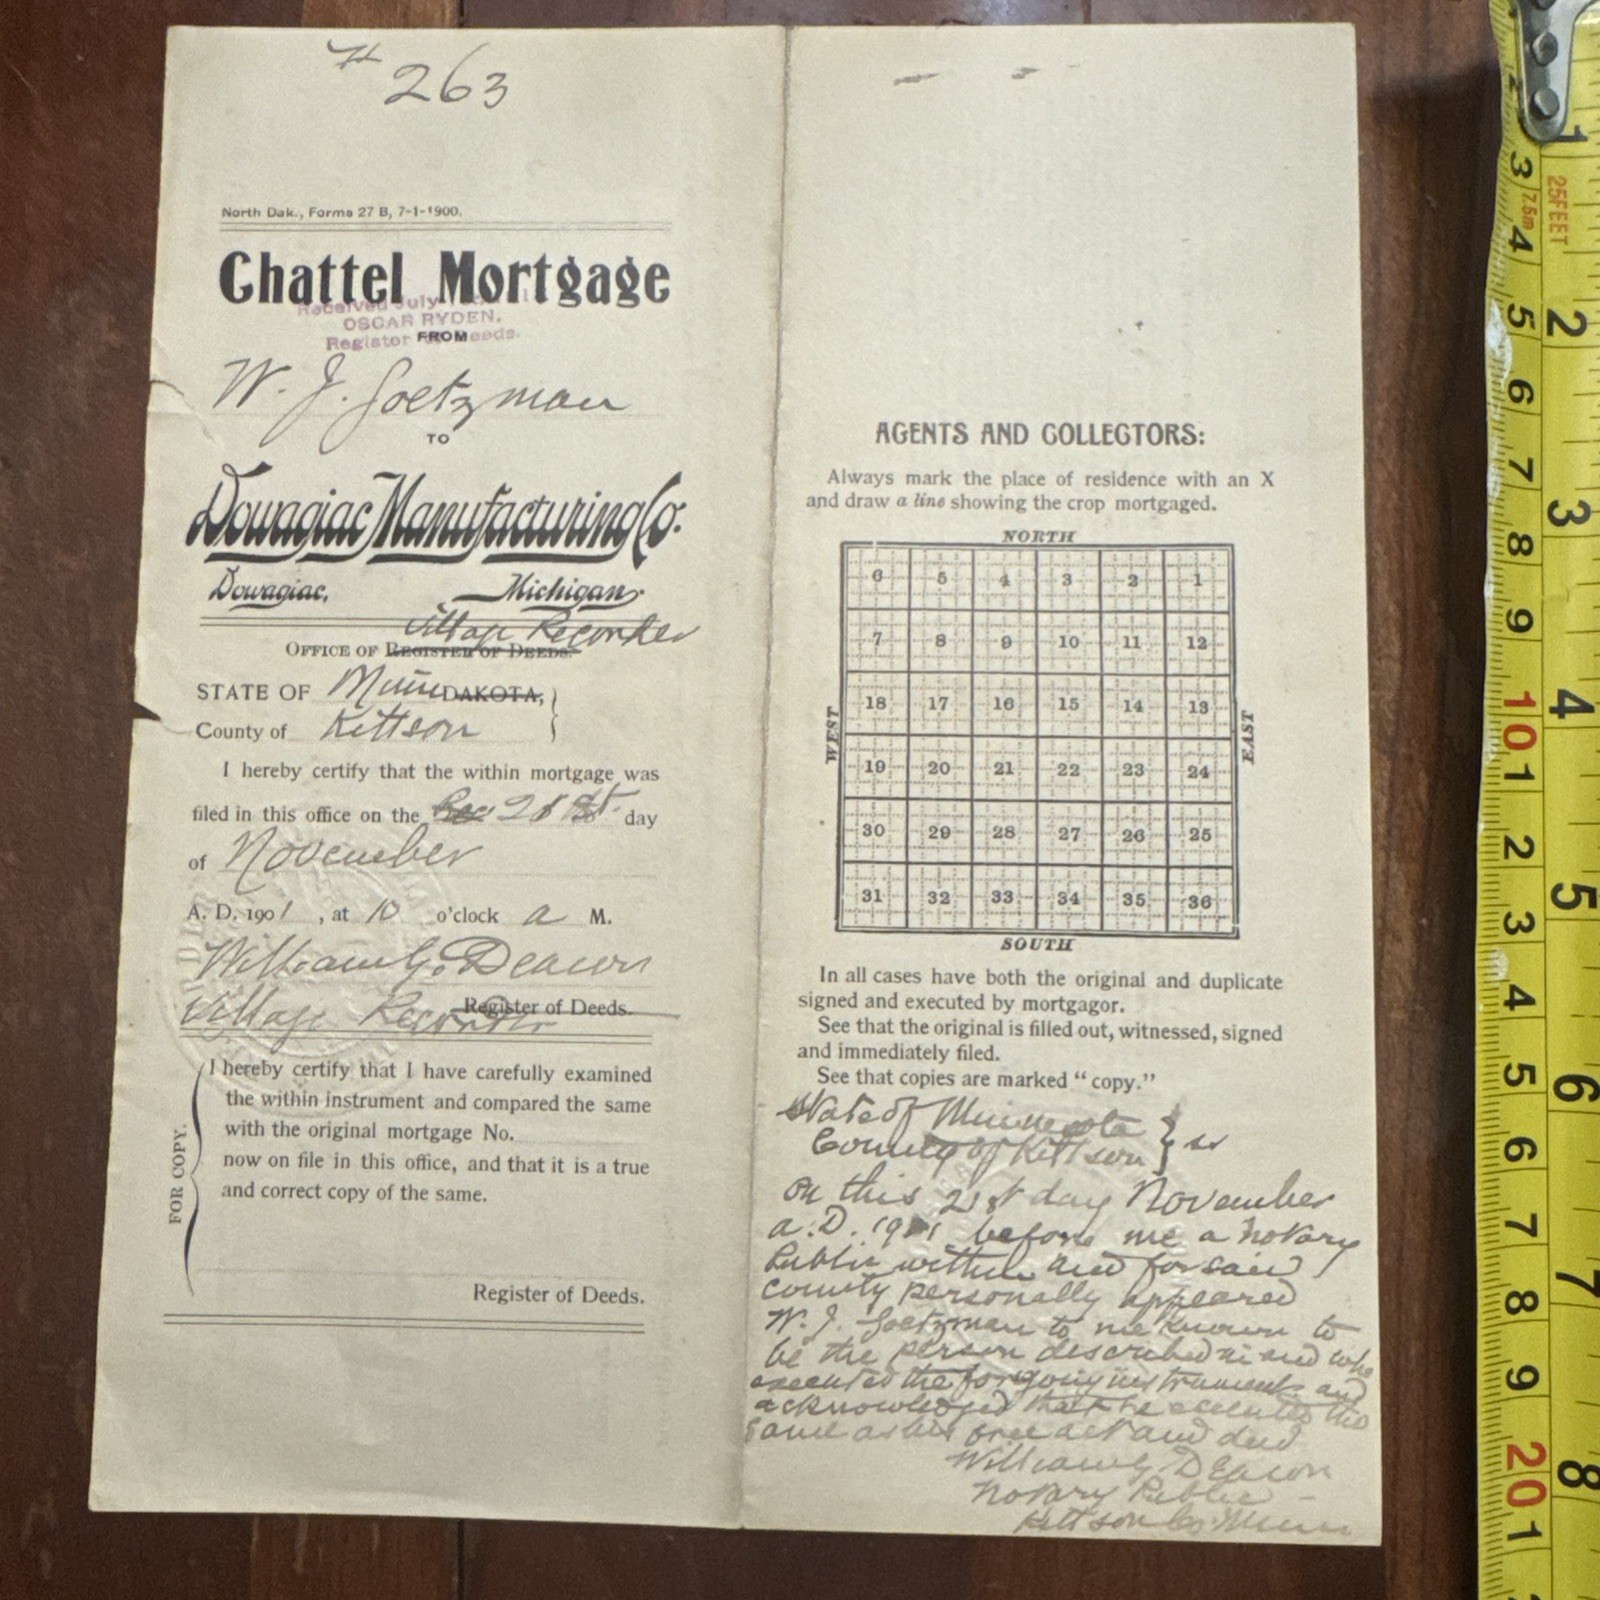 # 263
North Dak., Forms 27 B, 7-1-1900.
Chattel Mortgage
Received July
OSCAR RYDEN,
Register Deeds.
FROM
W. J. Goetzman
TO
Dowagiac Manufacturing Co.
Dowagiac, Michigan.
Village Recorder
OFFICE OF REGISTER OF DEEDS.
STATE OF Minn DAKOTA,
County of Kittson
I hereby certify that the within mortgage was
filed in this office on the 21st day
of November
A. D. 1901, at 10 o'clock a M.
William G. Deacon
Village Recorder Register of Deeds.
FOR COPY.
I hereby certify that I have carefully examined
the within instrument and compared the same
with the original mortgage No.
now on file in this office, and that it is a true
and correct copy of the same.
Register of Deeds.
AGENTS AND COLLECTORS:
Always mark the place of residence with an X
and draw a line showing the crop mortgaged.
NORTH
6 5 4 3 2 1
7 8 9 10 11 12
18 17 16 15 14 13
WEST
EAST
19 20 21 22 23 24
30 29 28 27 26 25
31 32 33 34 35 36
SOUTH
In all cases have both the original and duplicate
signed and executed by mortgagor.
See that the original is filled out, witnessed, signed
and immediately filed.
See that copies are marked "copy."
State of Minnesota } ss
County of Kittson
On this 21st day November
A.D. 1901 before me a notary
Public within and for said
County personally appeared
W. J. Goetzman to me known to
be the person described in and who
executed the forgoing instrument and
acknowledged that he executed the
same as his free act and deed
William G Deacon
Notary Public
Kittson Co. Minn
25FEET
7.5m
1
2
3
4
5
6
7
8
3
4
5
6
7
8
9
10
1
2
3
4
5
6
7
8
9
20
1